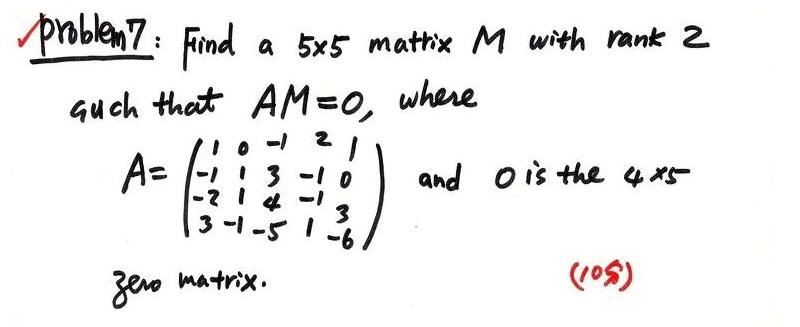 problem7: Find a 5x5 mattix M with rank 2
such that AM=0, where
A= ( 1 0 -1 2 1
-1 1 3 -1 0
-2 1 4 -1 3
3 -1 -5 1 -6 ) and 0 is the 4x5
zero matrix.
(10分)